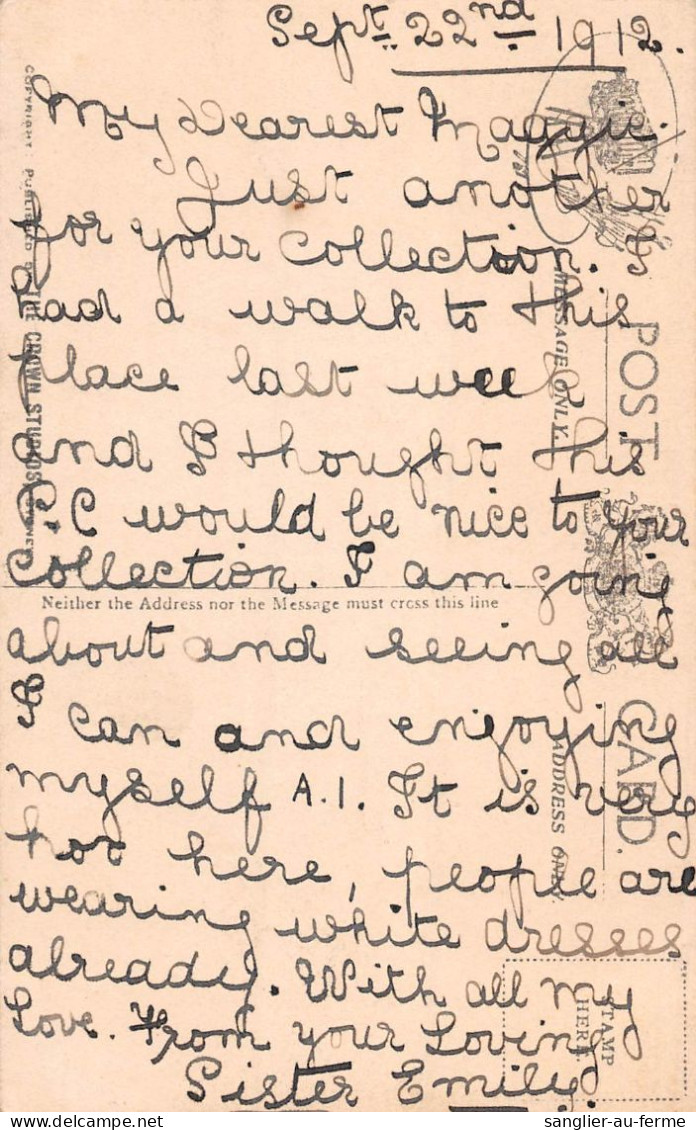 Sept. 22nd 1912.
My Dearest Maggie.
Just another
for your collection.
had a walk to this
place last week
and I thought this
P.C would be nice to your
collection. I am going
about and seeing all
I can and engoying
myself A.1. It is very
hot here, people are
wearing white dresses
already. With all my
Love. From your Loving
Sister Emily.
POST CARD.
MESSAGE ONLY.
ADDRESS ONLY.
Neither the Address nor the Message must cross this line
STAMP
HERE
COPYRIGHT: PUBLISHED BY THE CROWN STUDIOS SYDNEY
sanglier-au-ferme.com